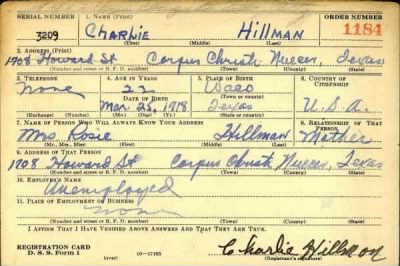 SERIAL NUMBER 1. NAME (Print) ORDER NUMBER
3209 CHARLIE HILLMAN 1184
(First) (Middle) (Last)
2. ADDRESS (Print)
1908 Howard St Corpus Christi Nueces, Texas
(Number and street or R. F. D. number) (Town) (County) (State)
3. TELEPHONE 4. AGE IN YEARS 5. PLACE OF BIRTH 6. COUNTRY OF CITIZENSHIP
None 22 Waco
DATE OF BIRTH (Town or county)
Mar 25, 1918 Texas U.S.A.
(Exchange) (Number) (Mo.) (Day) (Yr.) (State or country)
7. NAME OF PERSON WHO WILL ALWAYS KNOW YOUR ADDRESS 8. RELATIONSHIP OF THAT PERSON
Mrs Rosie Hillman Mother
(Mr., Mrs., Miss) (First) (Middle) (Last)
9. ADDRESS OF THAT PERSON
1908 Howard St Corpus Christi Nueces, Texas
(Number and street or R. F. D. number) (Town) (County) (State)
10. EMPLOYER'S NAME
Unemployed
11. PLACE OF EMPLOYMENT OR BUSINESS
None
(Number and street or R. F. D. number) (Town) (County) (State)
I AFFIRM THAT I HAVE VERIFIED ABOVE ANSWERS AND THAT THEY ARE TRUE.
REGISTRATION CARD
D. S. S. Form 1 (over) Charlie Hillmon
(Registrant's signature)